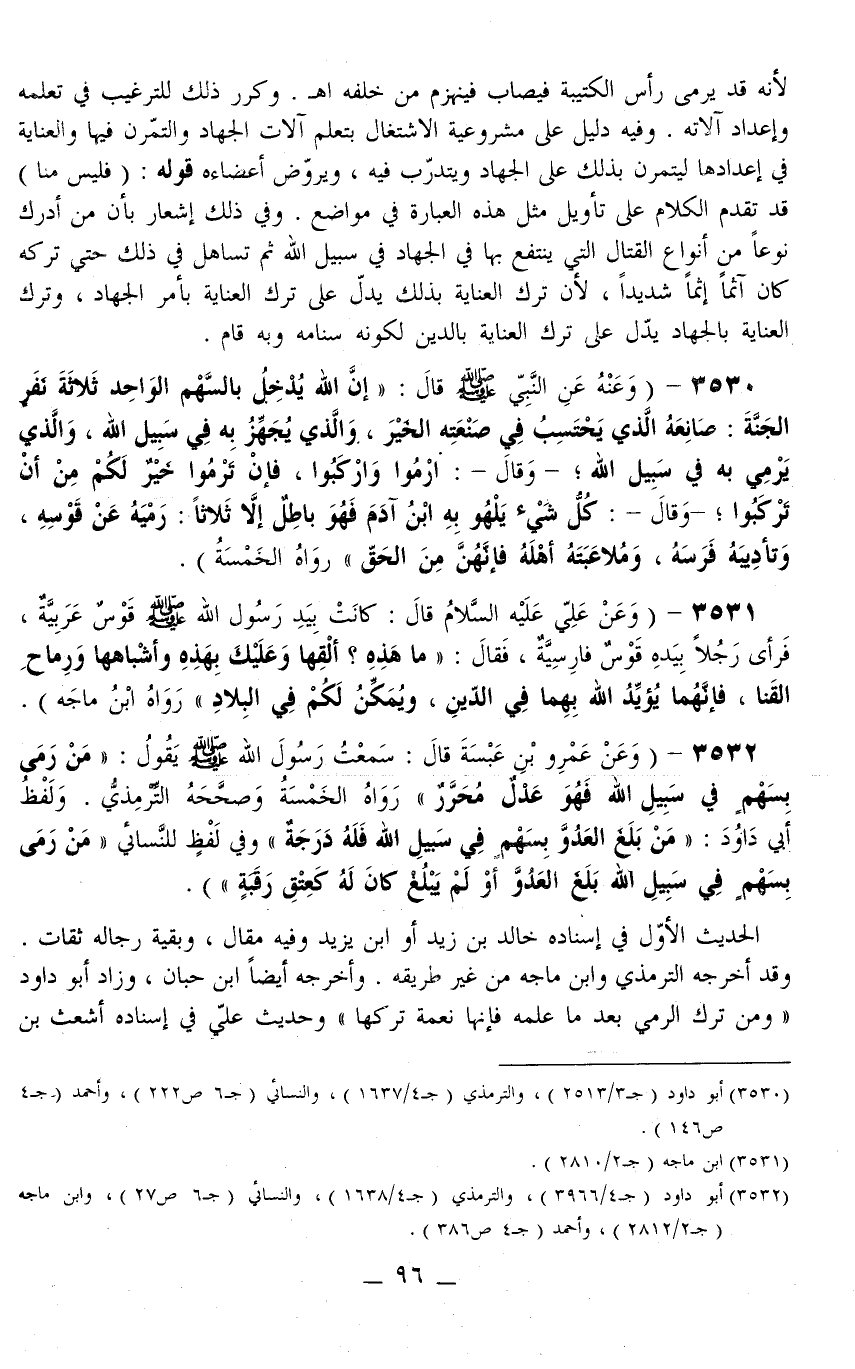 لأنه قد يرمى رأس الكتيبة فيصاب فينهزم من خلفه اهـ . وكرر ذلك للترغيب في تعلمه
وإعداد آلاته . وفيه دليل على مشروعية الاشتغال بتعلم آلات الجهاد والتمّرن فيها والعناية
في إعدادها ليتمرن بذلك على الجهاد ويتدرّب فيه ، ويروّض أعضاءه قوله : ( فليس منا )
قد تقدم الكلام على تأويل مثل هذه العبارة في مواضع . وفي ذلك إشعار بأن من أدرك
نوعاً من أنواع القتال التي ينتفع بها في الجهاد في سبيل الله ثم تساهل في ذلك حتي تركه
كان آثماً إثماً شديداً ، لأن ترك العناية بذلك يدلّ على ترك العناية بأمر الجهاد ، وترك
العناية بالجهاد يدّل على ترك العناية بالدين لكونه سنامه وبه قام .
٣٥٣٠ – ( وَعَنْهُ عَنِ النَّبِيّ ﷺ قالَ : « إنَّ الله يُدْخِلُ بالسَّهْم الوَاحِد ثَلاثَةَ نَفَرٍ
الجَنَّةَ : صَانِعَهُ الَّذي يَحْتَسِبُ فِي صَنْعَتِه الخَيْرَ ، وَالَّذي يُجَهِّزُ بِه فِي سَبِيل الله ، وَالَّذي
يَرْمِي به في سَبِيل الله ؛ – وَقالَ – : ارْمُوا وَارْكَبُوا ، فإنْ تَرْمُوا خَيْرٌ لَكُمْ مِنْ أنْ
تَرْكَبُوا ؛ –وَقالَ – : كُلُّ شَيْء يَلْهُو بِهِ ابْنُ آدَمَ فَهُوَ باطِلٌ إلَّا ثَلاثاً : رَمْيَهُ عَنْ قَوْسِهِ ،
وَتأدِيبَهُ فَرَسَهُ ، وَمُلاعَبَتَهُ أهْلَهُ فإنَّهُنَّ مِنَ الحَقّ » رواهُ الخَمْسَةُ ) .
٣٥٣١ – ( وَعَنْ عَلِيّ عَلَيْه السَّلامُ قالَ : كانَتْ بِيَدِ رَسُول الله ﷺ قَوْسٌ عَرَبِيَّةٌ ،
فَرأى رَجُلاً بِيَدِهِ قَوْسٌ فارِسِيَّةٌ ، فَقالَ : « ما هَذِهِ ؟ ألْقِها وَعَلَيْكَ بِهَذِهِ وأشْباهها وَرِماحِ
القَنا ، فإنَّهُما يُؤيِّدُ الله بِهِما فِي الدّينِ ، ويُمَكِّنُ لَكُمْ فِي البِلادِ » رَوَاهُ ابْنُ ماجَه ) .
٣٥٣٢ – ( وَعَنْ عَمْرِو بْنِ عَبْسَةَ قالَ : سَمعْتُ رَسُولَ الله ﷺ يَقُولُ : « مَنْ رَمَى
بِسَهْمٍ فِي سَبِيلِ الله فَهُوَ عَدْلُ مُحَرَّرٌ » رَوَاهُ الخَمْسَةُ وَصحَّحَهُ التِّرْمِذيُّ . وَلَفْظُ
أبي دَاوُدَ : « مَنْ بَلَغَ العَدُوَّ بِسَهْمٍ فِي سَبِيلِ الله فَلَهُ دَرَجَةٌ » وفي لَفْظٍ للنَّسائي « مَنْ رَمَى
بِسَهْمٍ فِي سَبِيلِ الله بَلَغَ العَدُوَّ أوْ لَمْ يَبْلُغْ كانَ لَهُ كَعِتْقِ رَقَبَةٍ » ) .
الحديث الأوّل في إسناده خالد بن زيد أو ابن يزيد وفيه مقال ، وبقية رجاله ثقات .
وقد أخرجه الترمذي وابن ماجه من غير طريقه . وأخرجه أيضاً ابن حبان ، وزاد أبو داود
« ومن ترك الرمي بعد ما علمه فإنها نعمة تركها » وحديث عليّ في إسناده أشعث بن
(٣٥٣٠) أبو داود ( جـ٢٥١٣/٣ ) ، والترمذي ( جـ١٦٣٧/٤ ) ، والنسائي ( جـ٦ ص٢٢٢ ) ، وأحمد (جـ٤
ص١٤٦ ) .
(٣٥٣١) ابن ماجه ( جـ٢٨١٠/٢ ) .
(٣٥٣٢) أبو داود ( جـ٣٩٦٦/٤ ) ، والترمذي ( جـ١٦٣٨/٤ ) ، والنسائي ( جـ٦ ص٢٧ ) ، وابن ماجه
( جـ٢٨١٢/٢ ) ، وأحمد ( جـ٤ ص٣٨٦ ) .
– ٩٦ –